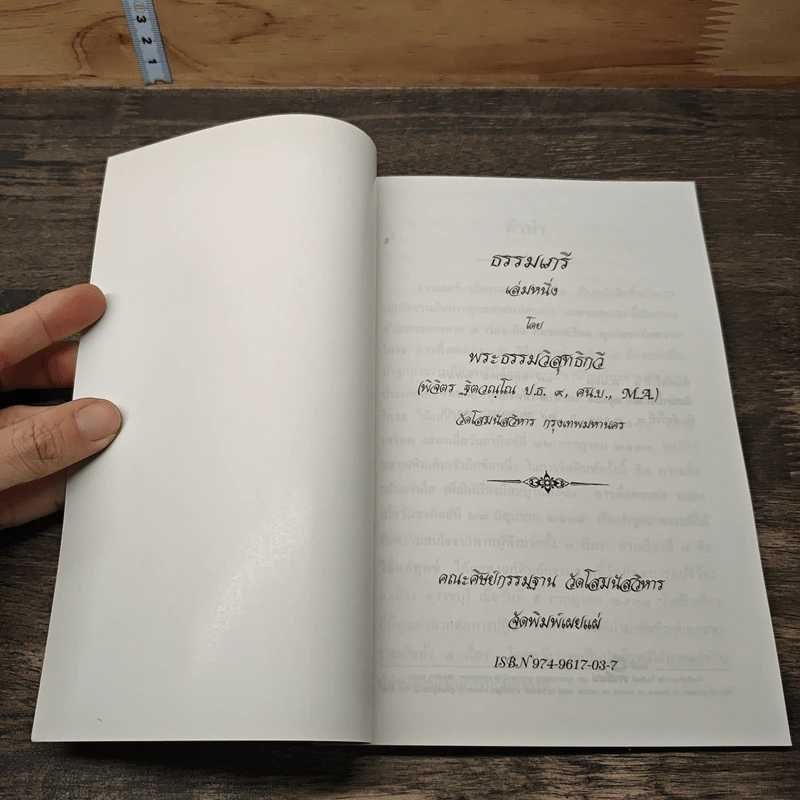 3 2 1
ธรรมเภรี
เล่มหนึ่ง
โดย
พระธรรมวิสุทธิกวี
(พิจิตร ฐิตวณฺโณ ป.ธ. ๙, ศน.บ., M.A.)
วัดโสมนัสวิหาร กรุงเทพมหานคร
คณะศิษย์กรรมฐาน วัดโสมนัสวิหาร
จัดพิมพ์เผยแผ่
ISBN 974-9617-03-7